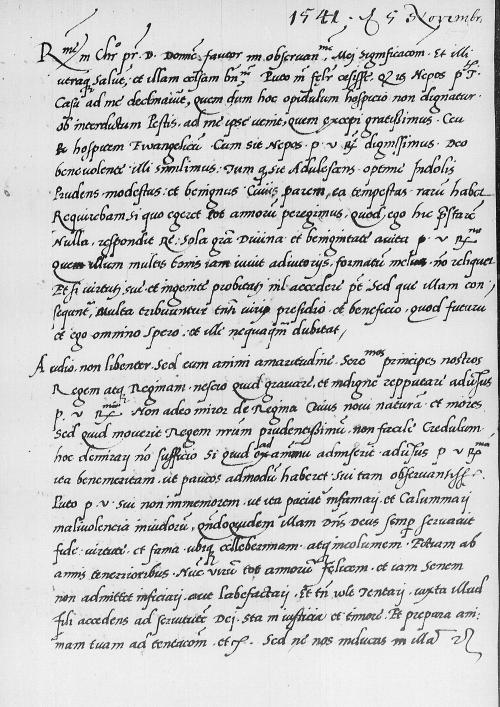 1541 . d 5 Novembr.
R.me in Chro pr. D. Domine. fautor mi observan.me Mei significacom. Et illi
utraq. Salute, et illam celsam bn.m Puto in felr cesisse. Nepos p. T.
Casu ad me declinavit, quem dum hoc opidulum hospicio non dignatur
ob interdictum Pestis. ad me ipse venit, quem excepi gratissimus. Ceu
hospitem Ewangelicum. Cum sit Nepos . p . v R. dignissimus. Deo
benevolente illi simlimus: Tum q. sit Adulescens optime Indolis
Prudens. modestus: et benignus Cuius parem, ea tempestas rarum habet
Requirebam Si quo egeret tot annorum peregrinus, Quod ego hic prestare
Nulla, respondit Re: Sola gra Divina et benignitate avita p . v . R.me
Quem illum multis bonis iam iuvit adiutorijs, formatum no reliquet
Etsi virtuti sue et ingenite probitati nil accedere pt. Sed que illam con,
sequnt, Multa tribuuntur tuo presidio et beneficio, quod futuru
et ego omnino spero. et ille nequaqm dubitat,
Audio. non libenter Sed cum animi amaritudine. Sere.mos principes nostros
Regem atq Reginam. nescio quid gravari, et indigne repputare adversus
p . v . R.mam Non adeo miror de Regina Cuius novi naturam et mores
Sed quid moverit Regem nrum prudentissimu. non facile Credulum
hoc demirari no sufficio Si quid ad examinu admiserit adversus p v R.ma
ita benemeritam. ut paucos admodu haberet Sui tam observantiss.
Puto p . v . sui non immemorem. ut ita paciat infamarj et Calumniarj
malivolencia invidoru, qndoquidem illam Dns Deus semp servavit
fide. virtute et fama ubiq celleberrimam. atq incolumem. Etiam ab
annis tenerrioribus. Nuc viru tot annoru felicem. et iam Senem
non admittet inficiarj. aut labefactarj. Et tn vole Tentarj. iuxta illud
fili accedens ad servitute Dej. sta in iusticia et timore. Et prepara ani-
mam tuam ad tentacom. etc. Sed ne nos inducas in illa